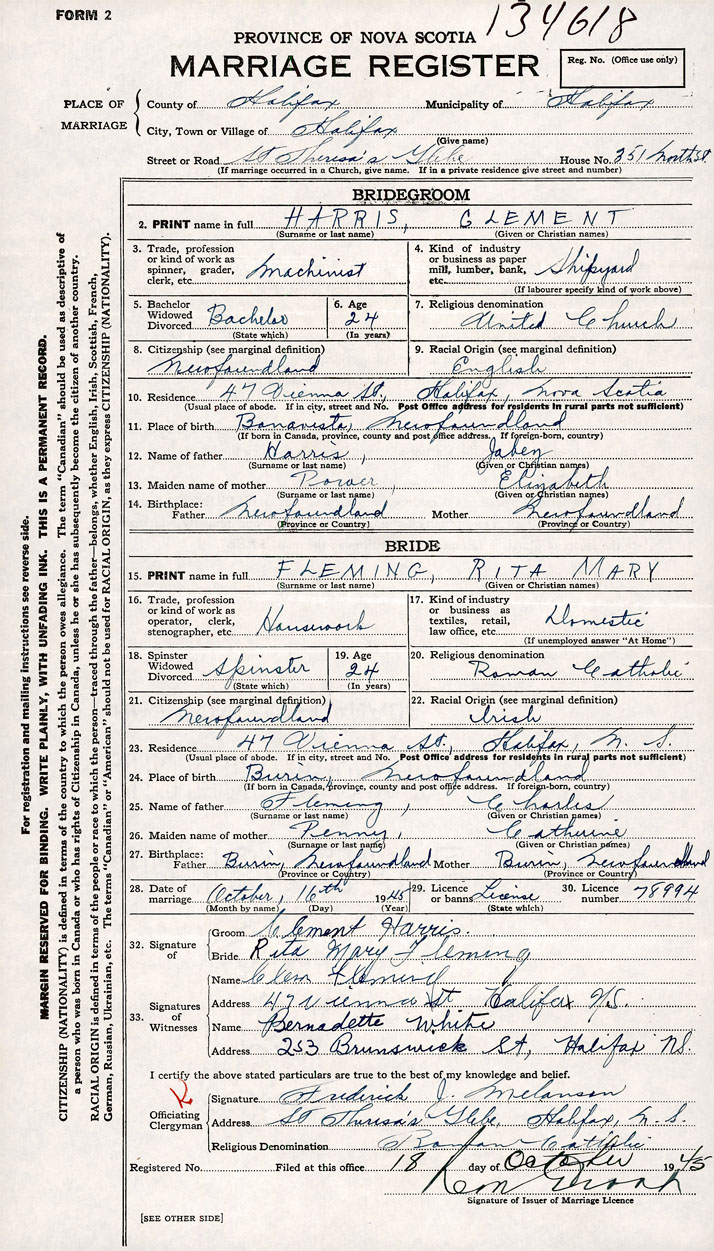 FORM 2
134618
PROVINCE OF NOVA SCOTIA
MARRIAGE REGISTER
Reg. No. (Office use only)
PLACE OF MARRIAGE
County of Halifax Municipality of Halifax
City, Town or Village of Halifax
(Give name)
Street or Road St Theresa's Glebe House No. 351 North St.
(If marriage occurred in a Church, give name. If in a private residence give street and number)
BRIDEGROOM
2. PRINT name in full HARRIS, CLEMENT
(Surname or last name) (Given or Christian names)
3. Trade, profession or kind of work as spinner, grader, clerk, etc. Machinist
4. Kind of industry or business as paper mill, lumber, bank, etc. Shipyard
(If labourer specify kind of work above)
5. Bachelor Widowed Divorced Bachelor (State which)
6. Age 24 (In years)
7. Religious denomination United Church
8. Citizenship (see marginal definition) Newfoundland
9. Racial Origin (see marginal definition) English
10. Residence 47 Vienna St, Halifax, Nova Scotia
(Usual place of abode. If in city, street and No. Post Office address for residents in rural parts not sufficient)
11. Place of birth Bonavista, Newfoundland
(If born in Canada, province, county and post office address. If foreign-born, country)
12. Name of father Harris, Jabez
(Surname or last name) (Given or Christian names)
13. Maiden name of mother Power, Elizabeth
(Surname or last name) (Given or Christian names)
14. Birthplace: Father Newfoundland Mother Newfoundland
(Province or Country) (Province or Country)
BRIDE
15. PRINT name in full FLEMING, RITA MARY
(Surname or last name) (Given or Christian names)
16. Trade, profession or kind of work as operator, clerk, stenographer, etc. Housework
17. Kind of industry or business as textiles, retail, law office, etc. Domestic
(If unemployed answer "At Home")
18. Spinster Widowed Divorced Spinster (State which)
19. Age 24 (In years)
20. Religious denomination Roman Catholic
21. Citizenship (see marginal definition) Newfoundland
22. Racial Origin (see marginal definition) Irish
23. Residence 47 Vienna St., Halifax, N. S.
(Usual place of abode. If in city, street and No. Post Office address for residents in rural parts not sufficient)
24. Place of birth Burin, Newfoundland
(If born in Canada, province, county and post office address. If foreign-born, country)
25. Name of father Fleming, Charles
(Surname or last name) (Given or Christian names)
26. Maiden name of mother Penny, Catherine
(Surname or last name) (Given or Christian names)
27. Birthplace: Father Burin, Newfoundland Mother Burin, Newfoundland
(Province or Country) (Province or Country)
28. Date of marriage October, 16th 1945 29. Licence or banns License 30. Licence number 78994
(Month by name) (Day) (Year) (State which)
32. Signature of
Groom Clement Harris.
Bride Rita Mary Fleming
33. Signatures of Witnesses
Name Clem Fleming
Address 47 Vienna St Halifax N.S.
Name Bernadette White
Address 253 Brunswick St, Halifax NS.
I certify the above stated particulars are true to the best of my knowledge and belief.
Officiating Clergyman
Signature Frederick J. Melanson
Address St Theresa's Glebe Halifax, N. S.
Religious Denomination Roman Catholic
Registered No. Filed at this office 18 day of October 1945
Signature of Issuer of Marriage Licence
[SEE OTHER SIDE]
For registration and mailing instructions see reverse side.
MARGIN RESERVED FOR BINDING. WRITE PLAINLY, WITH UNFADING INK. THIS IS A PERMANENT RECORD.
CITIZENSHIP (NATIONALITY) is defined in terms of the country to which the person owes allegiance. The term "Canadian" should be used as descriptive of
a person who was born in Canada or who has rights of Citizenship in Canada, unless he or she has subsequently become the citizen of another country.
RACIAL ORIGIN is defined in terms of the people or race to which the person—traced through the father—belongs, whether English, Irish, Scottish, French,
German, Russian, Ukrainian, etc. The terms "Canadian" or "American" should not be used for RACIAL ORIGIN, as they express CITIZENSHIP (NATIONALITY).